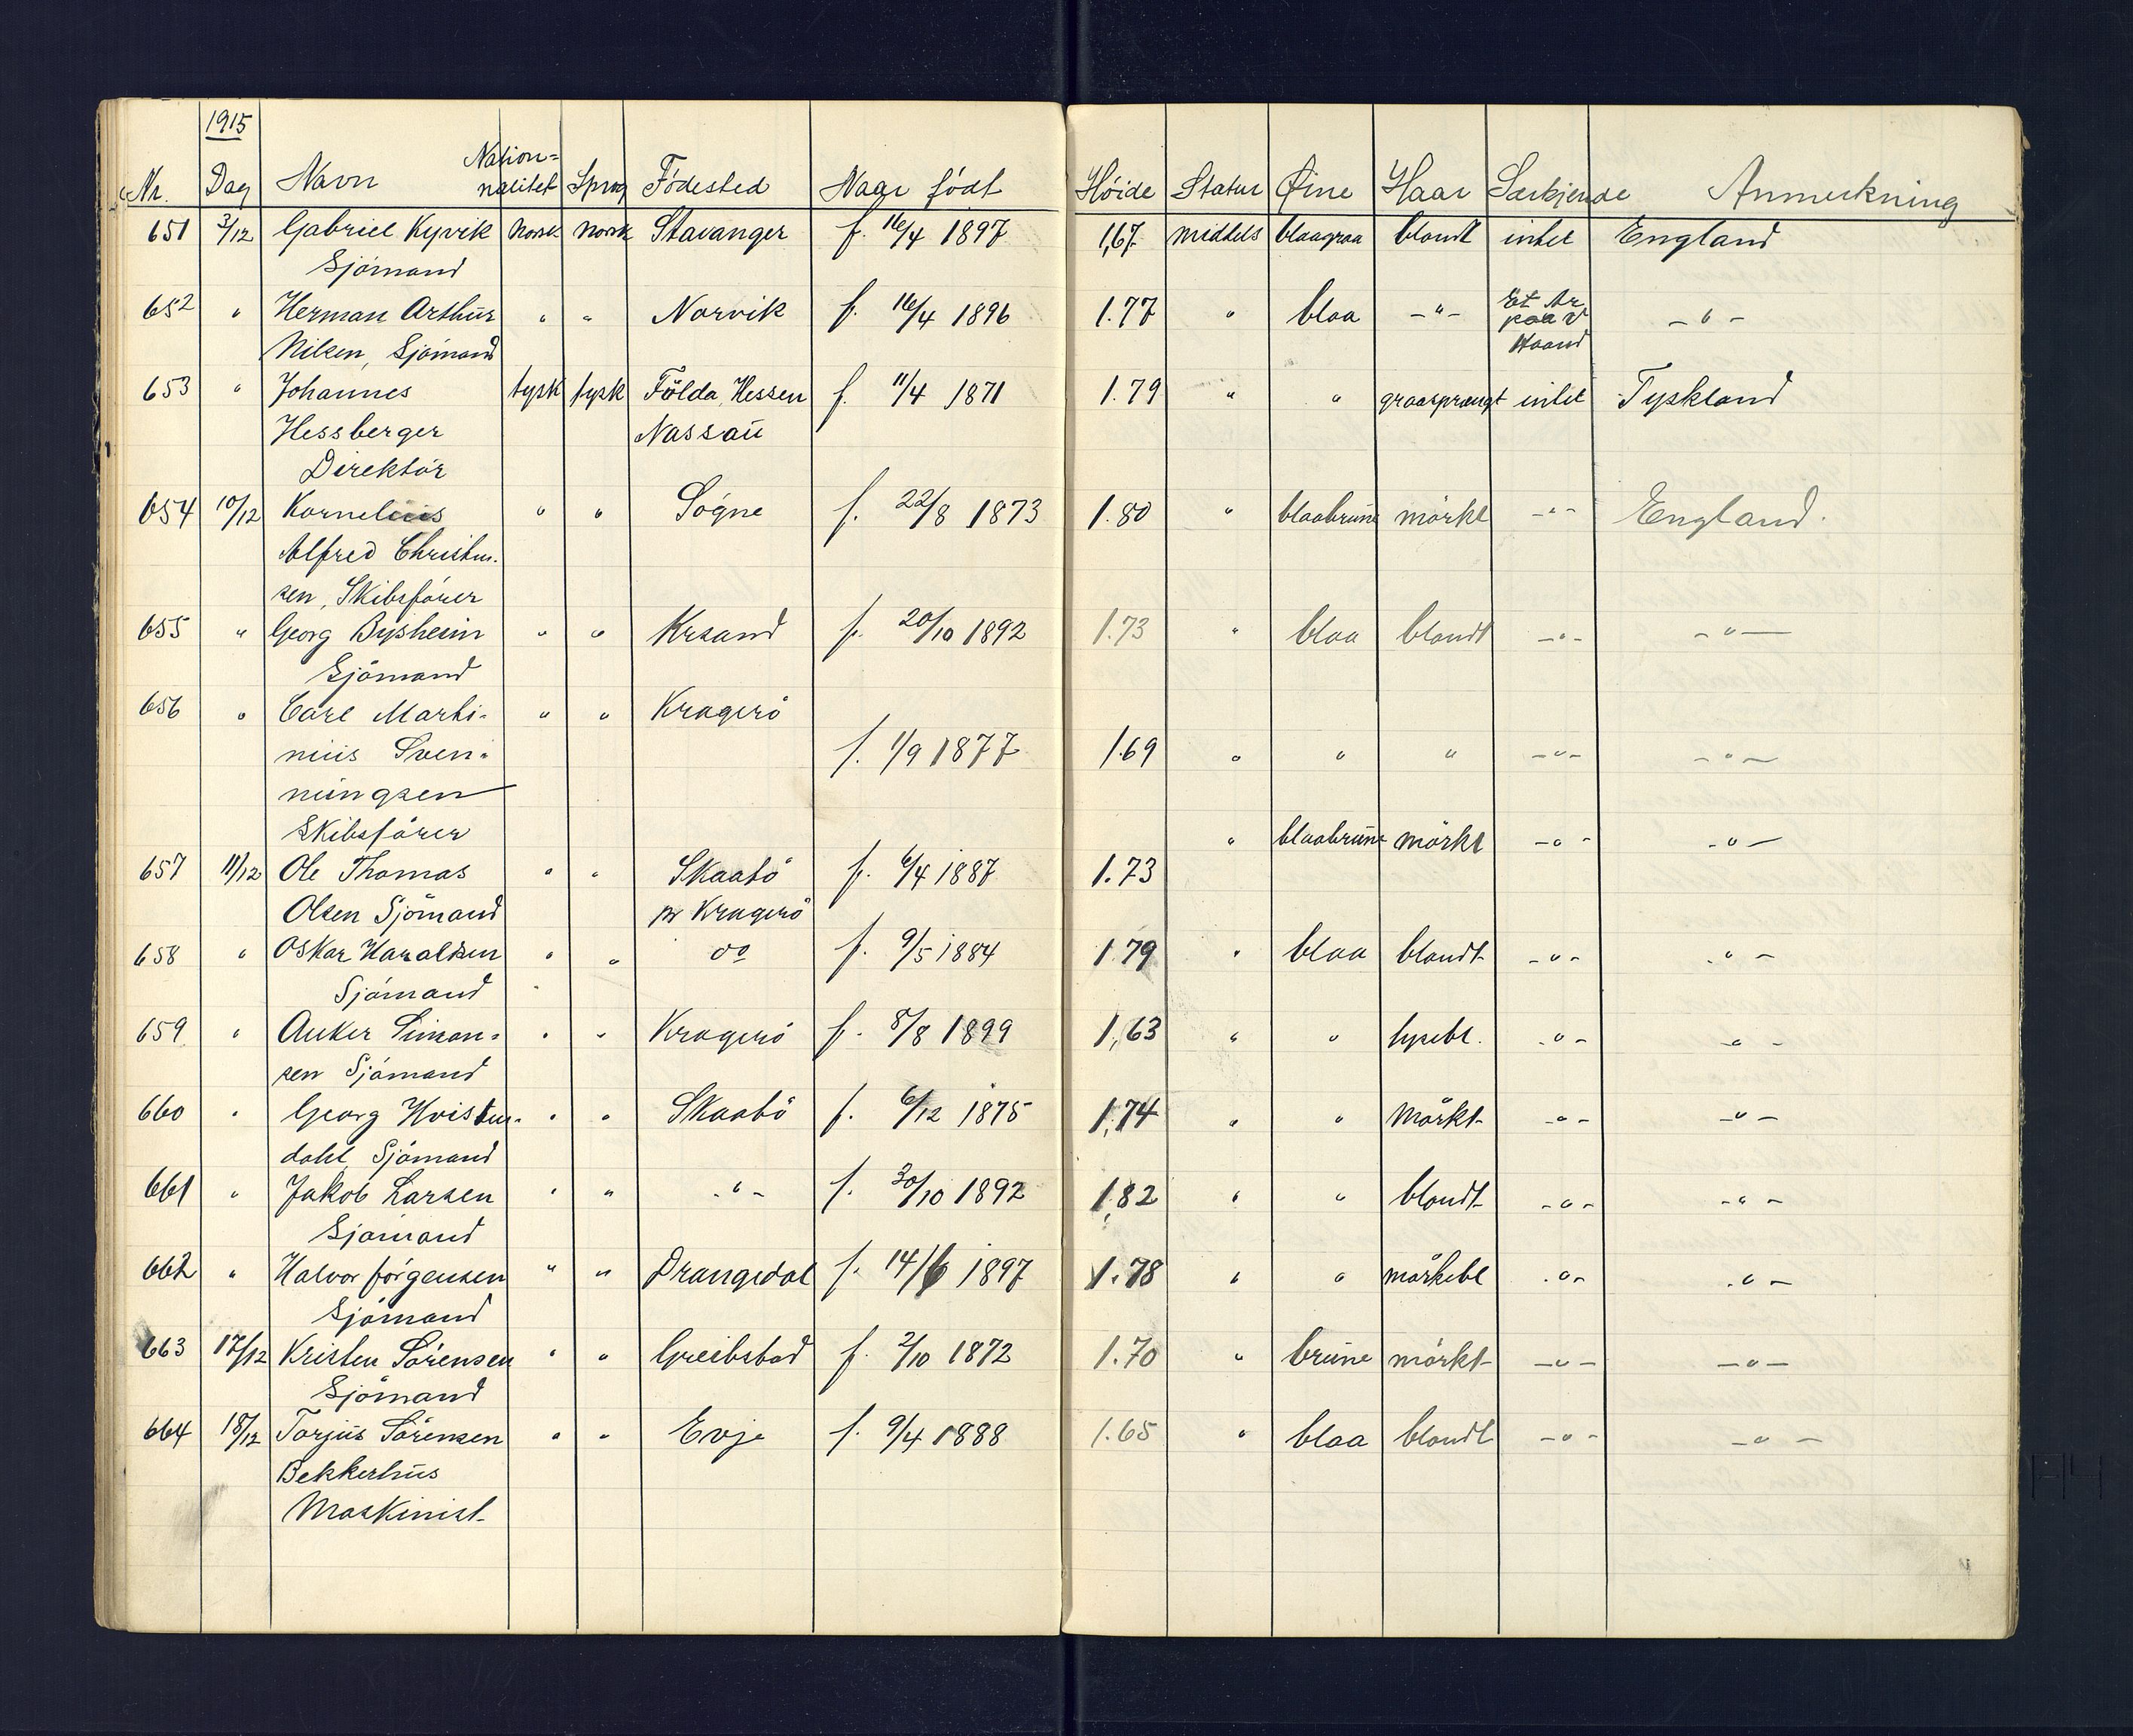 1915
Nr. Dag Navn Nation= nalitet Sprog Födested Naar födt Høide Statur Øine Haar Særkjende Anmerkning
651 3/12 Gabriel Kyvik Norsk norsk Stavanger f. 16/4 1897 1,67 middels blaagraa blondt intet England
Sjömand
652 " Herman Arthur " " Norvik f. 16/4 1896 1.77 " blaa -"- Et Ar paa V Haand -"-
Nilsen, Sjömand
653 " Johannes tysk tysk Földa, Hessen f. 11/4 1871 1.79 " " graasprængt intet Tyskland
Hessberger Nassau
Direktör
654 10/12 Kornelius " " Sögne f. 22/8 1873 1.80 " blaabrune mörkt -"- England.
Alfred Christen-
sen, Skibsförer
655 " Georg Bysheim " " Krsand f. 20/10 1892 1.73 " blaa blondt -"- -"-
Sjömand
656 " Carl Marti- " " Kragerö
nius Sven- f. 1/9 1877 1.69 " " " -"- -"-
ningsen
Skibsförer " blaabrune mörkt -"- -"-
657 11/12 Ole Thomas " " Skaatö f. 6/4 1887 1.73
Olsen Sjömand pr Kragerö
658 " Oskar Haralsen " " do f. 9/5 1884 1.79 " blaa blondt -"- -"-
Sjömand "
659 " Anker Simon= " " Kragerö f. 8/8 1899 1,63 " " lysebl. -"- -"-
sen Sjömand
660 " Georg Hvisten- " " Skaatö f. 6/12 1875 1,74 " " Mörkt -"- -"-
dahl, Sjömand
661 " Jakob Larsen " " -"- f. 30/10 1892 1,82 " " blondt -"- -"-
Sjömand
662 " Halvor Jörgensen " " Drangedal f. 14/6 1897 1.78 " " mörkebl -"- -"-
Sjömand
663 17/12 Kristen Sörensen " " Greibstad f. 2/10 1872 1.70 " brune mörkt -"- -"-
Sjömand
664 18/12 Torjus Sörensen " " Evje f. 9/4 1888 1.65 " blaa blondt -"- -"-
Bekkerhus
Maskinist